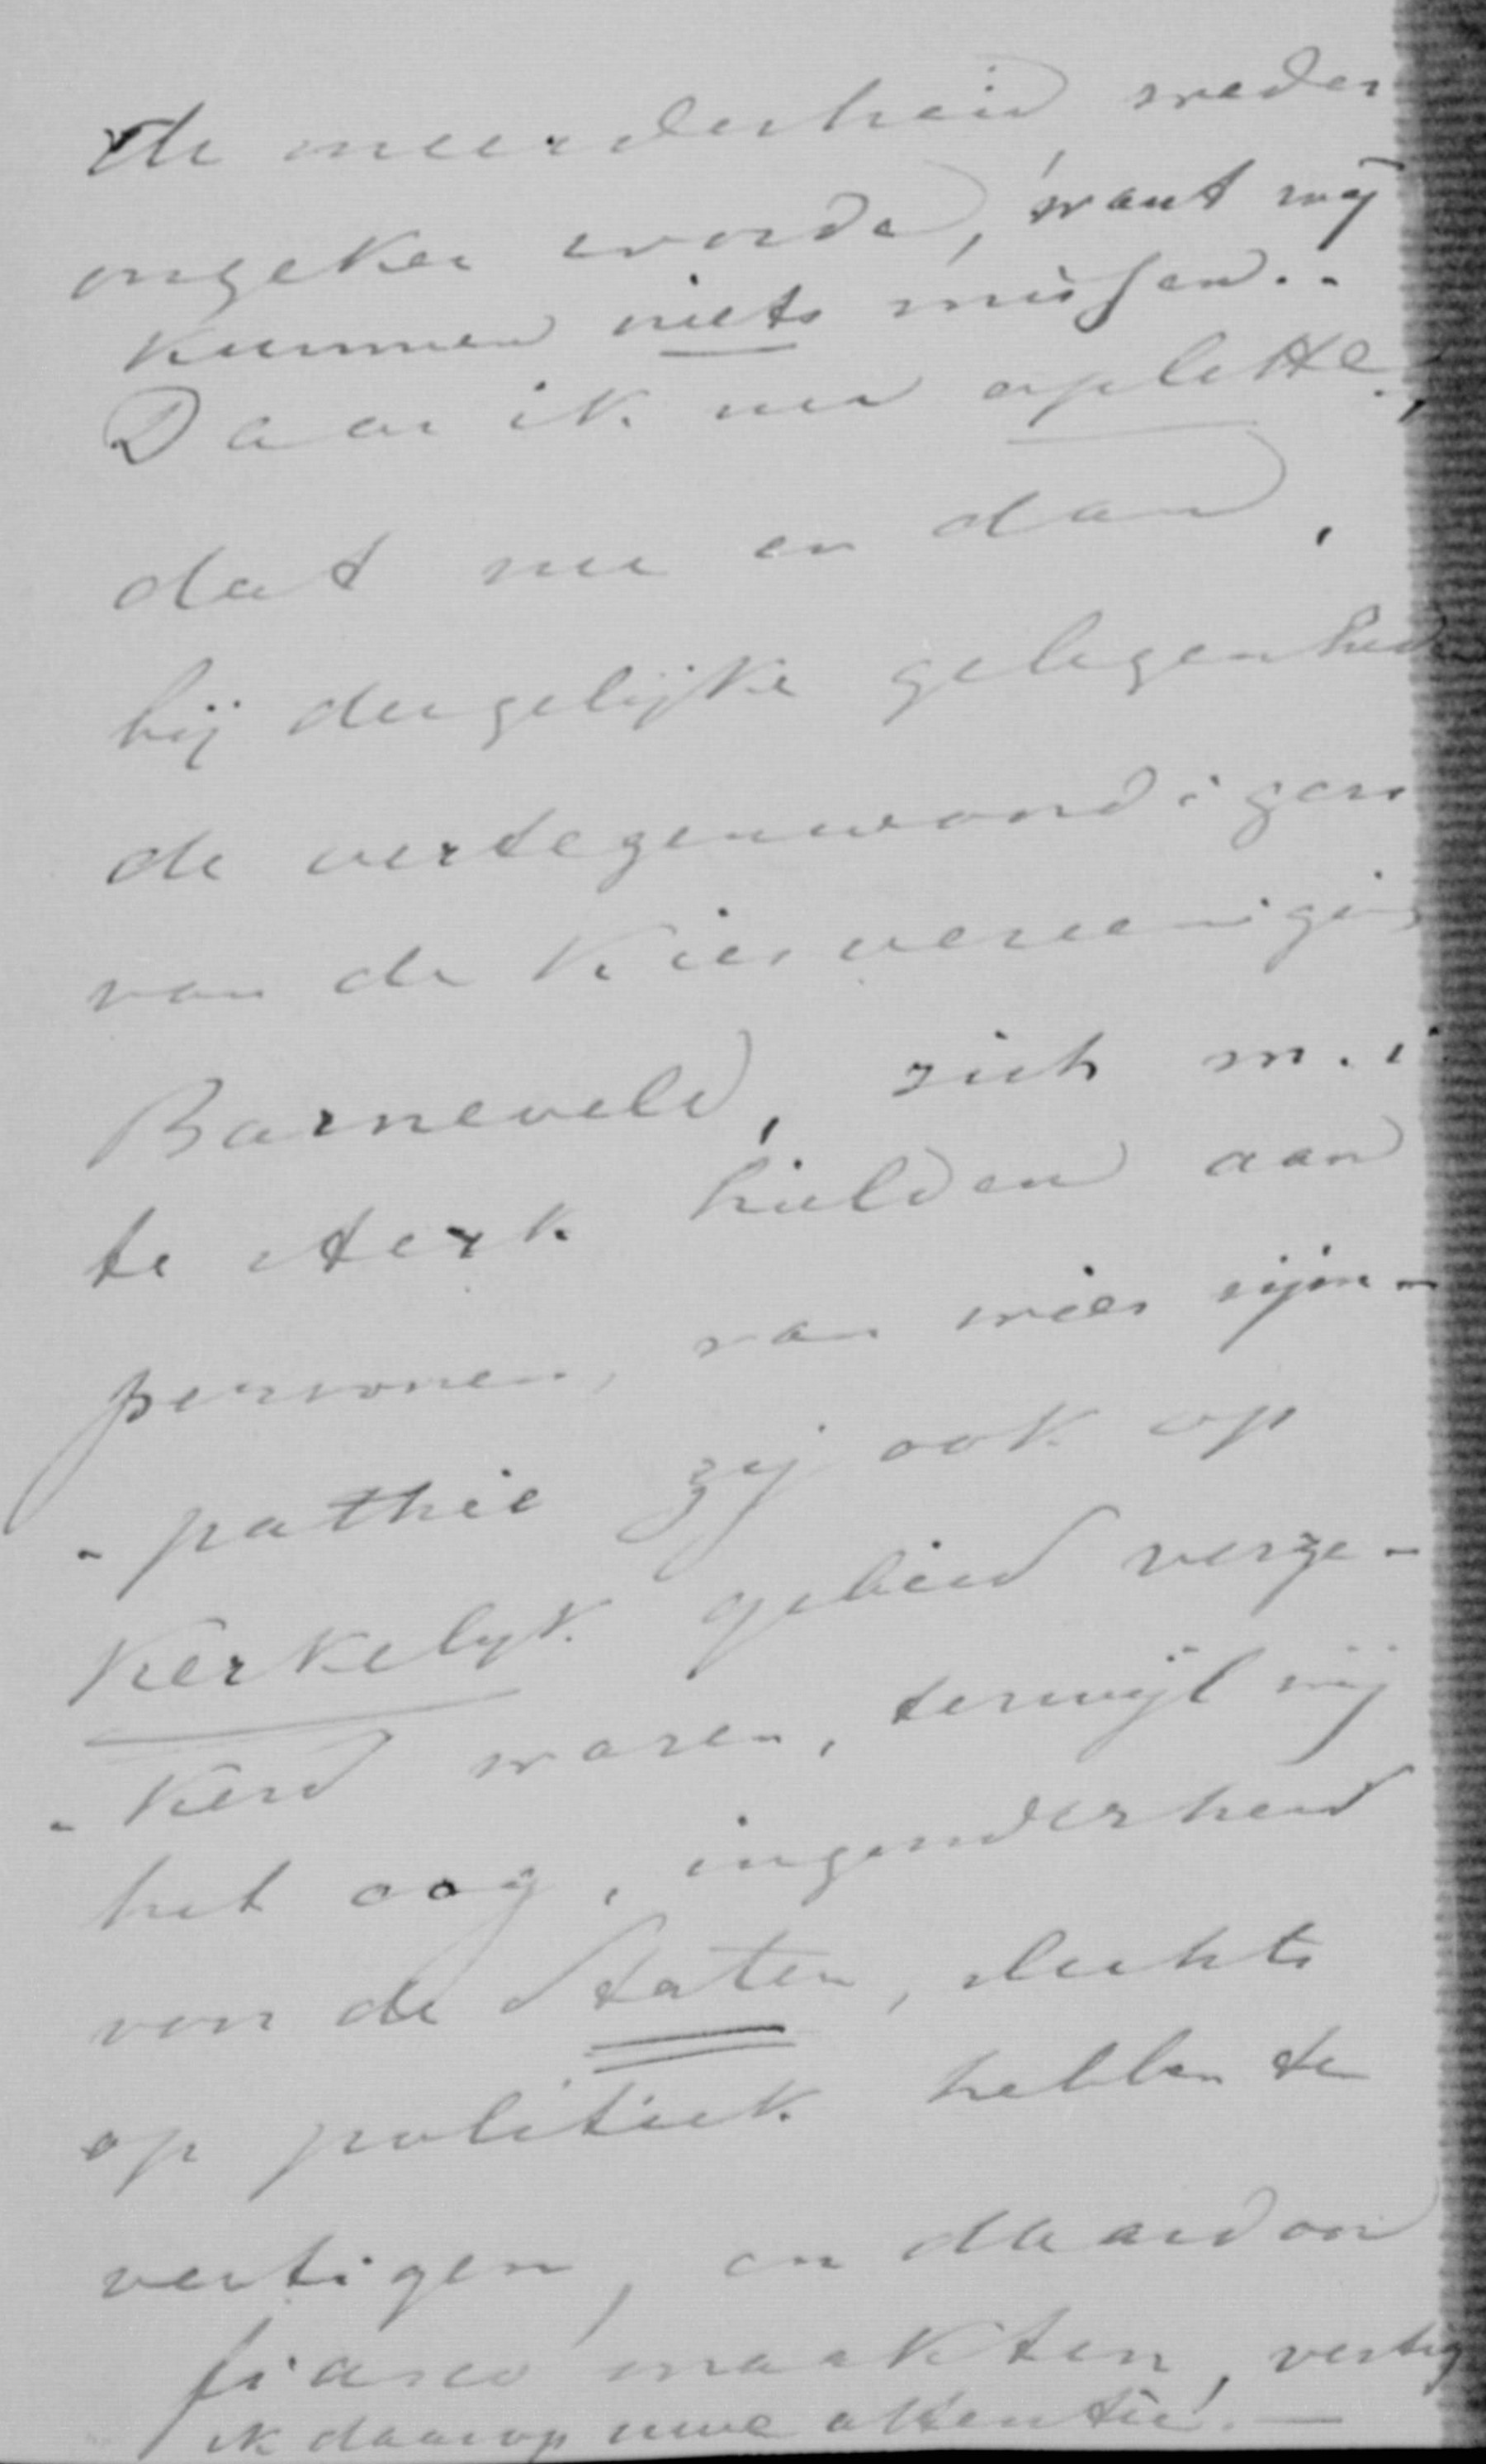 de meerderheid weder
onzeker worde, want wij
kunnen niets missen..
Daar ik nu oplette,
dat nu en dan,
bij dergelijke gelegenhed
de vertegenwoordigers
van de Kiesvereeniging
Barneveld, zich m. i.
te sterk hielden aan
personen, van wier sijm-
-pathie zij ook op
Kerkelijk gebied verze-
-kerd waren, terwijl wij
het oog, inzonderheid
voor de Staten, slechts
op politiek hebben te
vestigen, en daardoor
fiasco maakten, vestig
ik daarop uwe attentie! —